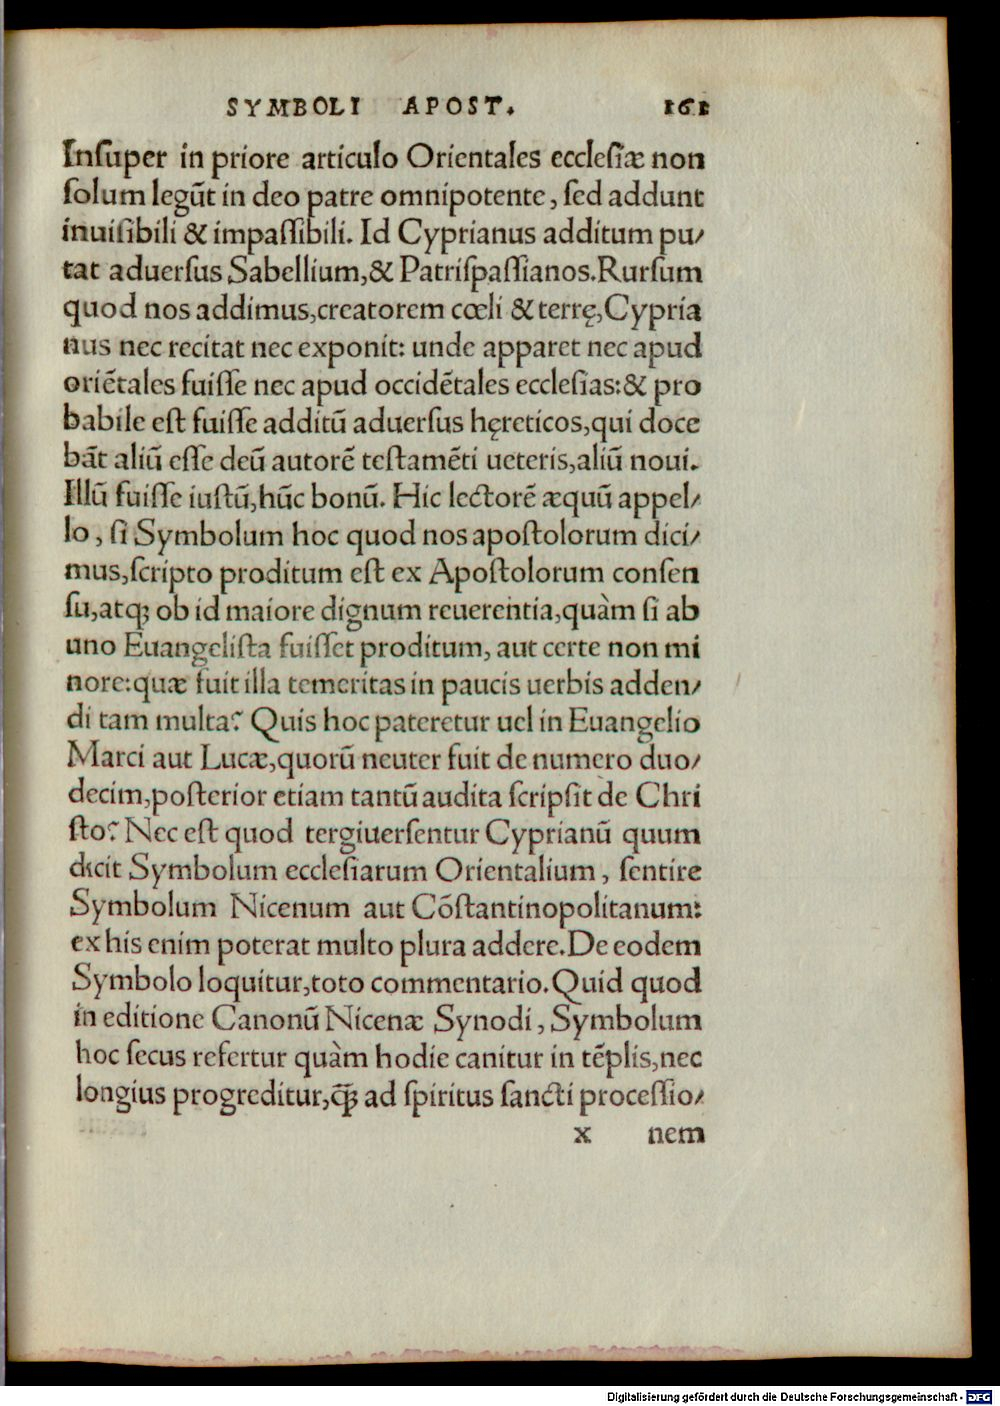 SYMBOLI APOST. 161
Inſuper in priore articulo Orientales eccleſiæ non
ſolum legūt in deo patre omnipotente, ſed addunt
inuiſibili & impaſſibili. Id Cyprianus additum pu⸗
tat aduerſus Sabellium,& Patriſpaſſianos.Rurſum
quod nos addimus,creatorem cœli & terrę,Cypria
nus nec recitat nec exponit: unde apparet nec apud
oriētales fuiſſe nec apud occidētales eccleſias:& pro
babile eſt fuiſſe additū aduerſus hęreticos,qui doce
bāt aliū eſſe deū autorē teſtamēti ueteris,aliū noui.
Illū fuiſſe iuſtū,hūc bonū. Hic lectorē æquū appel⸗
lo, ſi Symbolum hoc quod nos apoſtolorum dici⸗
mus,ſcripto proditum eſt ex Apoſtolorum conſen
ſu,atq; ob id maiore dignum reuerentia,quàm ſi ab
uno Euangeliſta fuiſſet proditum, aut certe non mi
nore:quæ fuit illa temeritas in paucis uerbis adden⸗
di tam multa? Quis hoc pateretur uel in Euangelio
Marci aut Lucæ,quorū neuter fuit de numero duo⸗
decim,poſterior etiam tantū audita ſcripſit de Chri
ſto? Nec eſt quod tergiuerſentur Cyprianū quum
dicit Symbolum eccleſiarum Orientalium, ſentire
Symbolum Nicenum aut Cōſtantinopolitanum:
ex his enim poterat multo plura addere.De eodem
Symbolo loquitur,toto commentario.Quid quod
in editione Canonū Nicenæ Synodi, Symbolum
hoc ſecus refertur quàm hodie canitur in tēplis,nec
longius progreditur,q̄; ad ſpiritus ſancti proceſſio⸗
x nem
Digitalisierung gefördert durch die Deutsche Forschungsgemeinschaft - DFG